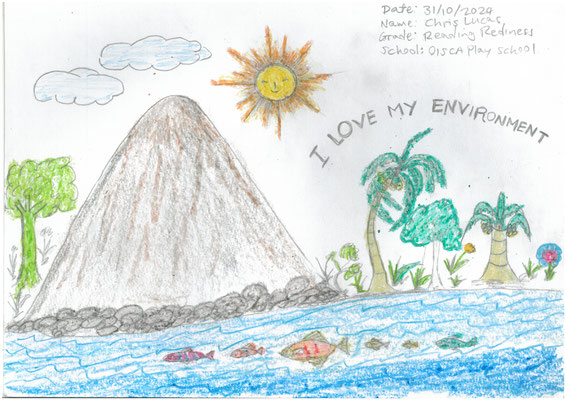 Date: 31/10/2024
Name: Chris Lucas
Grade: Reading Rediness
School: OISCA Play School
I LOVE MY ENVIRONMENT